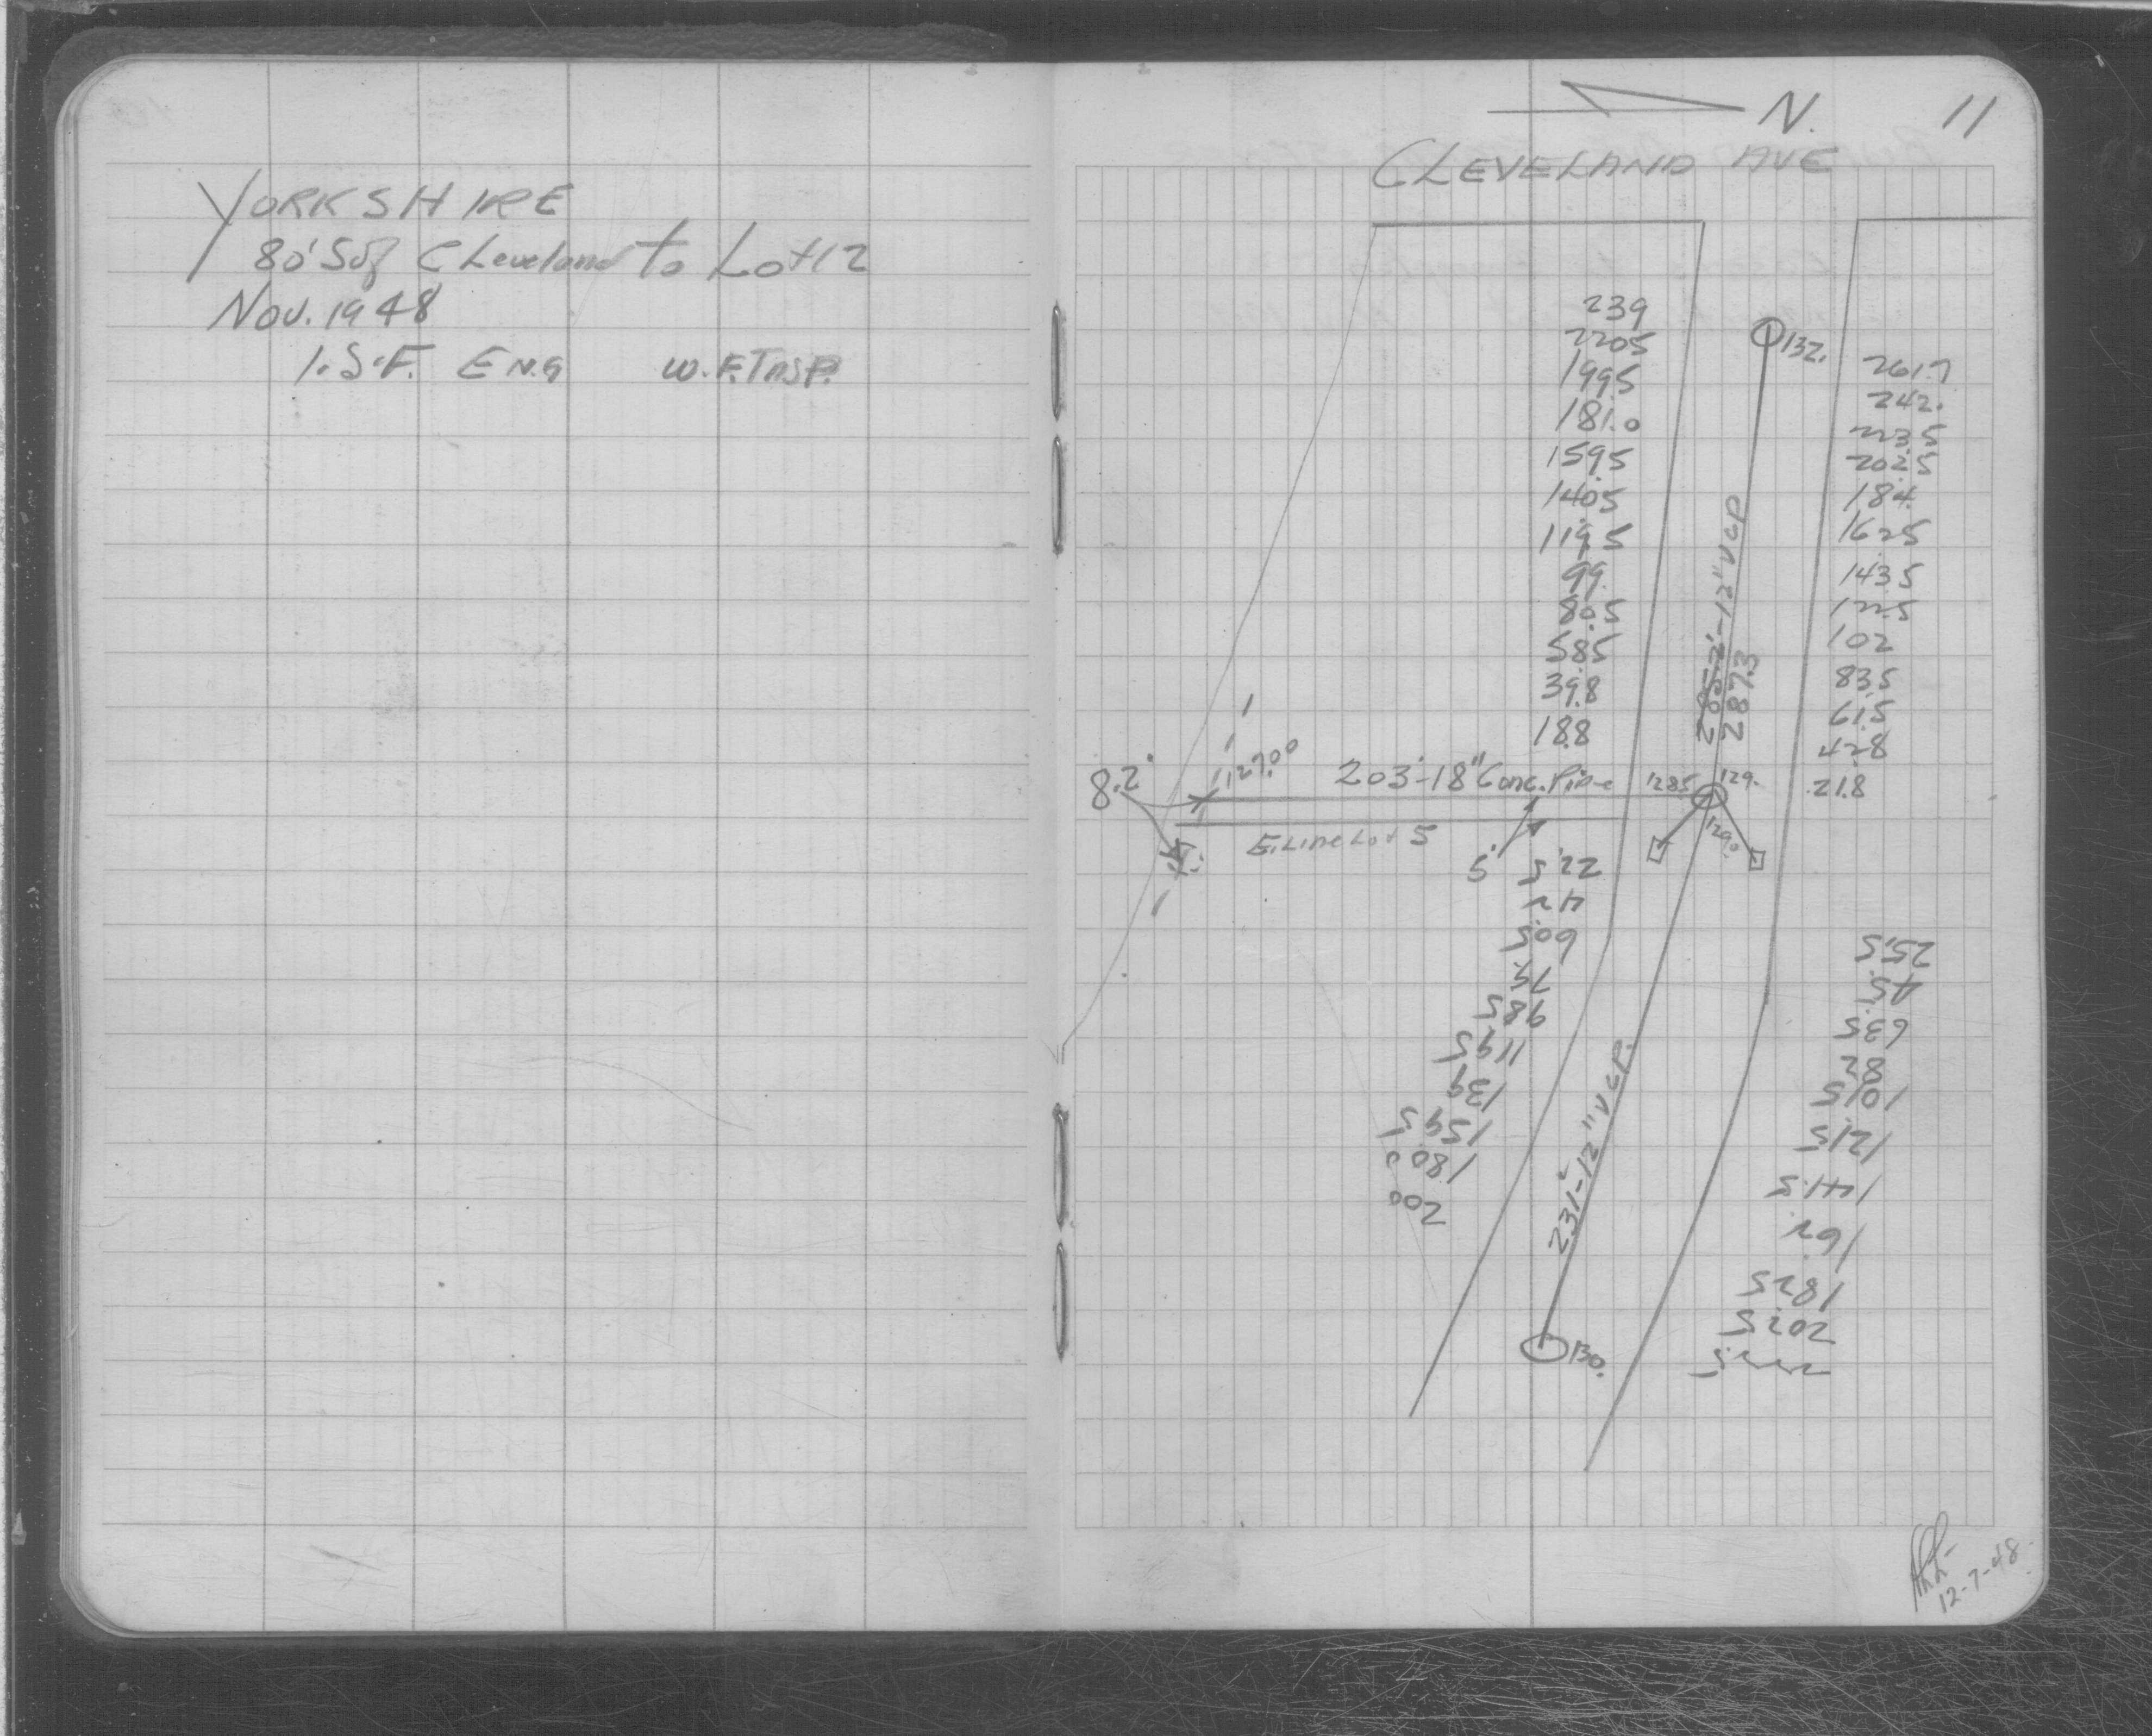 YORKSHIRE
80' S of Cleveland to Lot 12
Nov. 1948
I.S.F. ENG W.F. INSP.
N. 11
CLEVELAND AVE
239
220.5
199.5
181.0
159.5
140.5
119.5
99.
80.5
58.5
39.8
18.8
132.
261.7
242.
223.5
202.5
184.
162.5
143.5
122.5
102
83.5
61.5
42.8
21.8
12" VCP
287.3
8.2'
127.00
203'-18" Conc. Pipe
128.5
129.
129.0
E. Line Lot 5
5'
22.5
42
60.5
79.
98.5
119.5
139
159.5
180.0
200
25.5
45.
63.5
82
101.5
121.5
141.5
162.
182.5
202.5
222.5
231'-12" VCP.
130.
12-7-48.